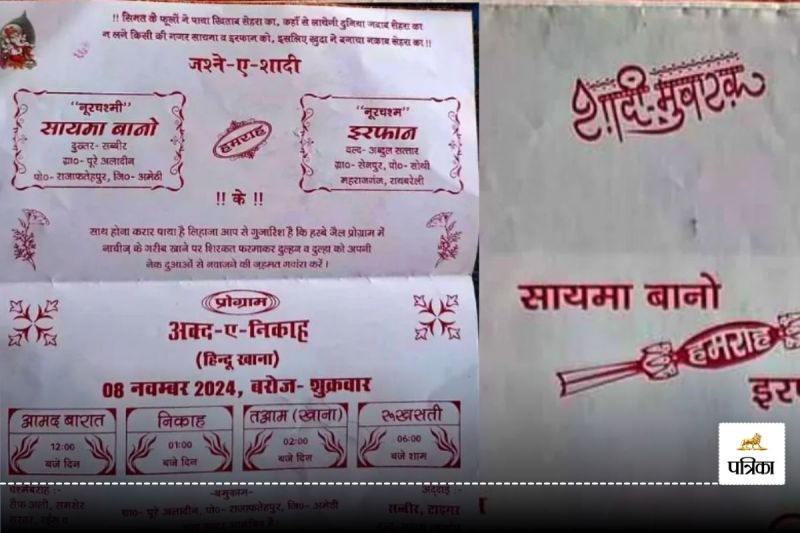 !! सिमत के फूलों ने पाया खिताब सेहरा का, कहाँ से लायेगी दुनिया जवाब सेहरा का
न लगे किसी की नजर सायमा व इरफान को, इसलिए खुदा ने बनाया नकाब सेहरा का !!
जश्ने-ए-शादी
"नूरचश्मी"
सायमा बानो
दुख्तर- सब्बीर
ग्रा०- पूरे अलादीन
पो०- राजाफतेहपुर, जि०- अमेठी
हमराह
"नूरचश्म"
इरफान
वल्द- अब्दुल सत्तार
ग्रा०- सेनपुर, पो०- सोथी
महराजगंज, रायबरेली
!! के !!
साथ होना करार पाया है लिहाजा आप से गुजारिश है कि हस्बे जैल प्रोग्राम में
नाचीज् के गरीब खाने पर शिरकत फरमाकर दुल्हन व दुल्हा को अपनी
नेक दुआओं से नवाजने की जहमत गवांरा करें।
प्रोग्राम
अक्द-ए-निकाह
(हिन्दू खाना)
08 नवम्बर 2024, बरोज- शुक्रवार
आमद बारात
12:00
बजे दिन
निकाह
01:00
बजे दिन
तआम (खाना)
02:00
बजे दिन
रूखसती
06:00
बजे शाम
चश्मेबराह :-
रौफ अली, समसेर
-बमुकाम-
ग्रा०- पूरे अलादीन, पो०- राजाफतेहपुर, जि०- अमेठी
सब्बीर, टाइगर
शादी-मुबारक
सायमा बानो
हमराह
पत्रिका